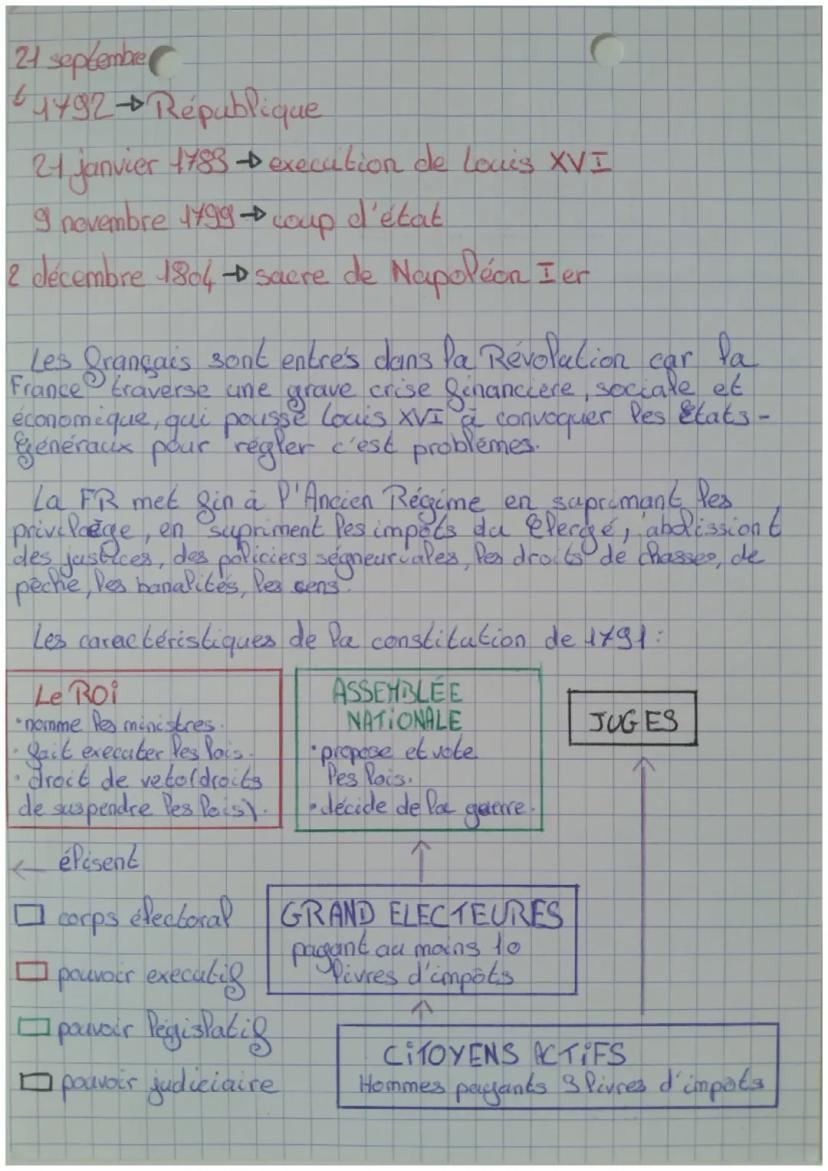 21 septembre
1792 → République
21 janvier 1789 → execution de Louis XVI
9 novembre 1799 → coup d'état
2 décembre 1804 → sacre de Napoléon Ier
Les français sont entrés dans la Révolution car la
France traverse une grave crise financière, sociale et
économique, qui pousse Louis XVI à convoquer les états-
généraux pour régler c'est problèmes.
La FR met fin à l'Ancien Régime en suprimant les
privilège, en supriment les impôts du clergé, abolission t
des justices, des policiers ségneuriales, les droits de chasses, de
pêche, les banalités, les cens.
Les caractéristiques de la constitution de 1791 :
Le ROI
• nomme les ministres.
• fait executer les lois.
• droit de veto (droits
de suspendre les lois).
ASSEMBLÉE
NATIONALE
• propose et vote
les lois.
• décide de la guerre.
JUGES
← élisent
corps électoral
GRAND ELECTEURES
payant au moins 10
livres d'impôts
pouvoir executif
pouvoir législatif
CITOYENS ACTIFS
Hommes payants 3 livres d'impots
pouvoir judiciaire